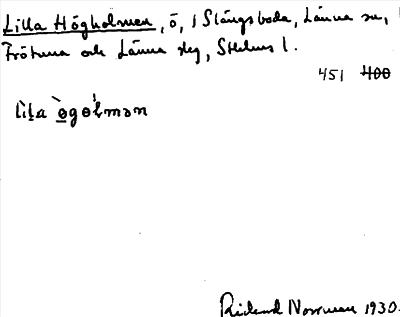 Lilla Högholmen, ö, i Slängsboda, Länna sn,
Frötuna och Länna slg, Sthlms l.
451 400
lìḷa ò̱gɵlmən
Rickard Norrman 1930.